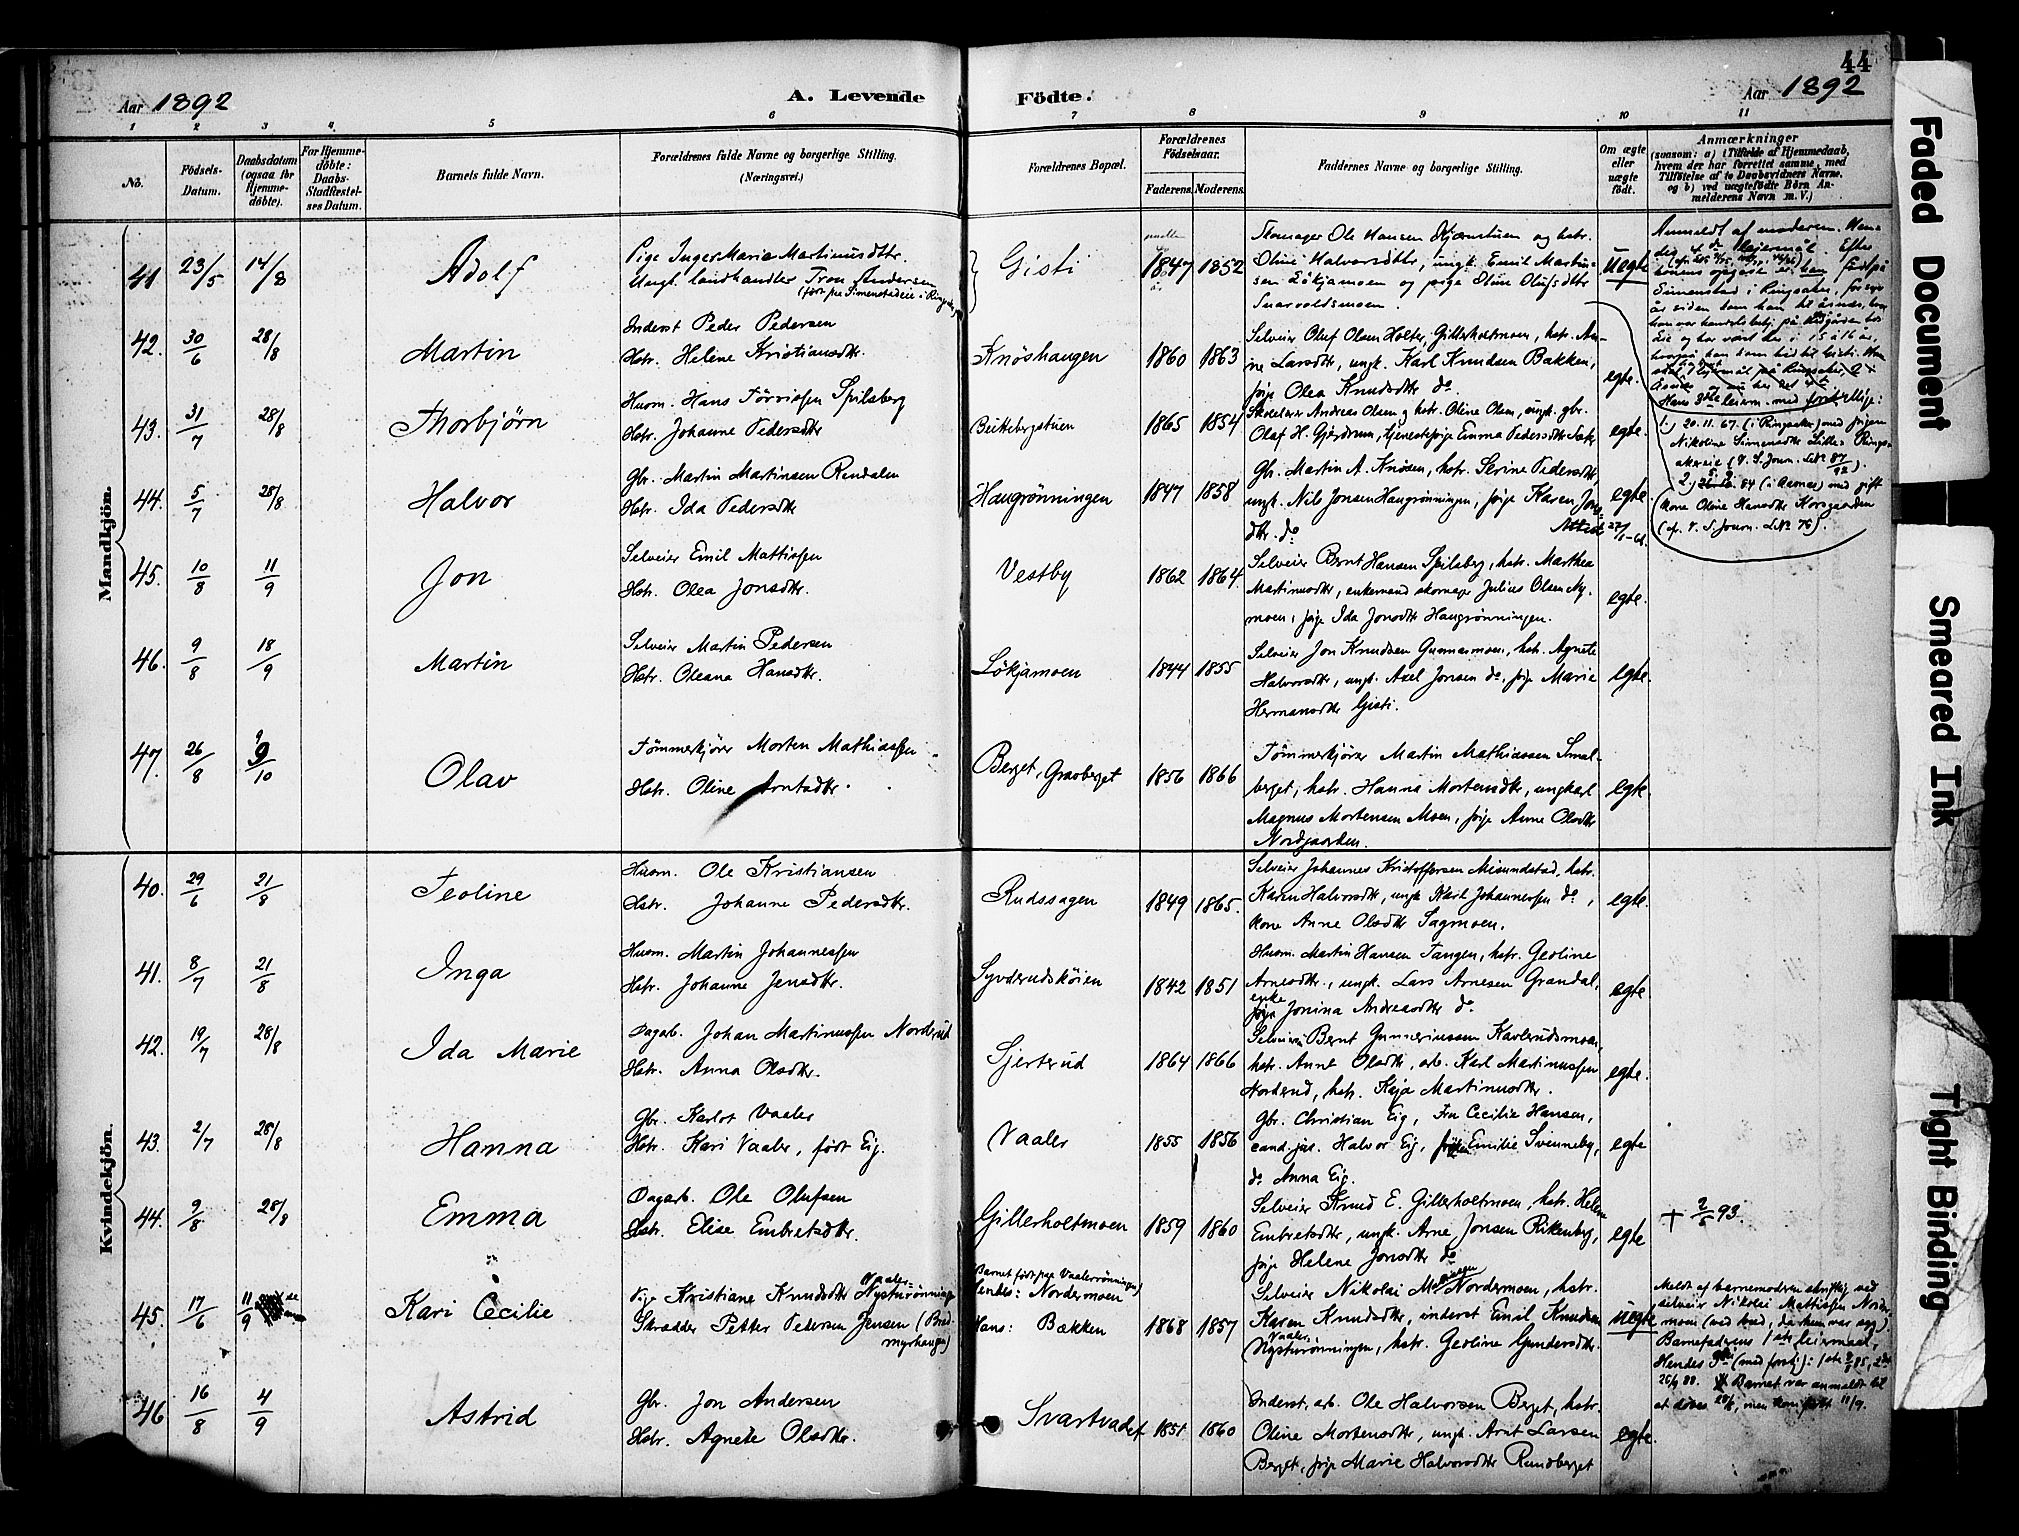 44
Aar 1892
A. Levende
Födte.
Aar 1892
1 2 3 4 5 6 7 8 9 10 11
No.
Födsels-
Datum.
Daabsdatum
(ogsaa for
Hjemme-
døbte).
For Hjemme-
døbte:
Daabs-
Stadfæstel-
ses Datum.
Barnets fulde Navn.
Forældrenes fulde Navne og borgerlige Stilling.
(Næringsvei.)
Forældrenes Bopæl.
Forældrenes
Födselsaar.
Faderens. Moderens.
Faddernes Navne og borgerlige Stilling.
Om ægte
eller
uægte
födt.
Anmærkninger
(saasom: a) i Tilfælde af Hjemmedaab,
hvem der har forrettet samme, med
Tilföielse af to Daabsvidners Navne,
og b) ved uægtefödte Börn An-
melderens Navn m. V.)
Mandkjön.
41 23/5 14/8
Adolf
Pige Inger Marie Martinusdtr.
Ungk. landhandler Tron Andersen
(født paa Simenstadeie i Ringsaker)
Gisti
1847 1852
Skomager Ole Hansen Kjærnstuen og hstr.
Oline Halvorsdtr, ungk. Emil Martin-
sen Løkjamoen og pige Oline Olufsdtr
Snarvoldsmoen.
Uegte
Anmeldt af moderen.
42. 30/6 28/8
Martin
Inderst Peder Pedersen
Hstr. Helene Kristiansdtr.
Knöshaugen
1860 1863
Selveier Oluf Olsen Holter, Gillerholtmoen, hstr. An-
ne Larsdtr, ungk. Karl Knudsen Bakken,
pige Olea Knudsdtr do
egte.
43. 31/7 28/8
Thorbjørn
Husm. Hans Tørrissen Spilsberg
Hstr. Johanne Pedersdtr
Butebergstuen
1865 1854
Andreas Olsen og hstr. Oline Olsen, ungk. gbr.
Olaf H. Gjørdrum, tjenestepige Emma Pedersdtr
egte.
1.) 20.11.67. (i Ringsaker) med pigen
Nikoline Simensdtr
44. 5/7 28/8
Halvor
Gbr. Martin Martinsen Rendalen
Hstr. Ida Pedersdtr
Haugrønningen
1847 1858
Gbr. Martin A. Knösen, hstr. Serine Pedersdtr,
ungk. Nils Jonsen Haugrønningen, pige Karen Jons-
dtr. do Attest 27/1-61.
egte
kone Oline Hansdtr Korsgaarden
45. 10/8 11/9
Jon
Selveier Emil Mattissen
Hstr. Olea Jonsdtr.
Vestby
1862 1864
Selveier Bernt Hansen Spilsberg, hstr. Marthea
Martinusdtr, enkemand skomager Julius Olsen Ny-
moen, pige Ida Jonsdtr Haugrønningen.
egte.
46. 9/8 18/9
Martin
Selveier Martin Pedersen
Hstr. Oleana Hansdtr.
Løkjamoen
1844 1855
Selveier Jon Knudsen Gunnarsmoen, hstr. Agnete
Halvorsdtr, ungk. Axel Jonsen do, pige Marie
Hermansdtr Gisti.
egte.
47. 26/8 9/10
Olav
Tømmerkjører Morten Mathiassen
Hstr. Oline Arntsdtr.
Berget, Gravberget
1856 1866
Tømmerkjører Martin Mathiassen Smal-
berget, hstr. Hanna Mortensdtr, ungkarl
Magnus Mortensen Moen, pige Anne Olsdtr
Nordgaarden.
egte.
Kvindekjön.
40. 29/6 21/8
Teoline
Husm. Ole Kristiansen
Hstr. Johanne Pedersdtr.
Rudssagen
1849 1865.
Selveier Johannes Kristoffersen Misundstad, hstr.
Karen Halvorsdtr, ungk. Karl Johannessen do,
kone Anne Olsdtr Sagmoen.
egte.
41. 8/7 21/8
Inga
Husm. Martin Johannessen
Hstr. Johanne Jensdtr.
Syvderudskøien
1842 1851
Husm. Martin Hansen Tangen, hstr. Geoline
Arnesdtr., ungk. Lars Arnesen Grandal,
enke
pige Jonina Andreasdtr do
egte
42. 19/7 28/8
Ida Marie
Dagarb. Johan Martinussen Norderud
Hstr. Anna Olsdtr.
Sjerterud
1864 1866
Selveier Bernt Gunnerinssen Karlsrudsmoen,
hstr. Anne Olsdtr, arb. Karl Martinussen
Norderud, hstr. Kaja Martinusdtr.
egte.
43. 2/7 28/8
Hanna
Gbr. Karlot Vaaler
Hstr. Kari Vaaler, født Eig.
Vaaler
1855 1856
Gbr. Christian Eig, Fru Cecilie Hansen,
cand. jur. Halvor Eig, frk Emilie Svenneby,
do Anna Eig.
egte
44. 9/8 28/8
Emma
Dagarb. Ole Olufsen
Hstr. Elise Embretsdtr.
Gillerholtmoen
1859 1860
Selveier Knud E. Gillerholtmoen, hstr. Helene
Embretsdtr, ungk. Arne Jonsen Rikenberg,
pige Helene Jonsdtr do
egte
† 2/5 93.
45. 17/6 11/9
Kari Cecilie
Pige Kristiane Knudsdtr Vaaler-Nysturønningen
Skrædder Petter Pedersen Jensen (Bred-
myrhaugen)
Barnet født paa Vaalerrønningen
hendes: Nordermoen
Hans: Bækken
1868 1857
Selveier Nikolai Mattissen Nordermoen, hstr.
Karen Knudsdtr, inderst Emil Knudsen
(Vaaler) Nysturønningen, hstr. Geoline Gundersdtr.
uegte
Meldt af barnemoderen skriftlig ved
selveier Nikolai Mattissen Norder-
moen (ved bud, da hun var syg).
Barnefaderens 1ste leiermaal,
Hendes 3die (med forskj): 1ste 85, 2det
26/9 88. Barnet var anmeldt til
at døbes 28/8, men kom først 11/9.
46 16/8 4/9
Astrid
Gbr. Jon Andersen
Hstr. Agnete Olsdtr.
Svartvadet
1851 1860
Inderst, arb. Ole Halvorsen Berget, hstr.
Oline Mortensdtr, ungk. Arnt Larsen
Berget, pige Marie Halvorsdtr Rundberget
egte.
Faded Document
Smeared Ink
Tight Binding